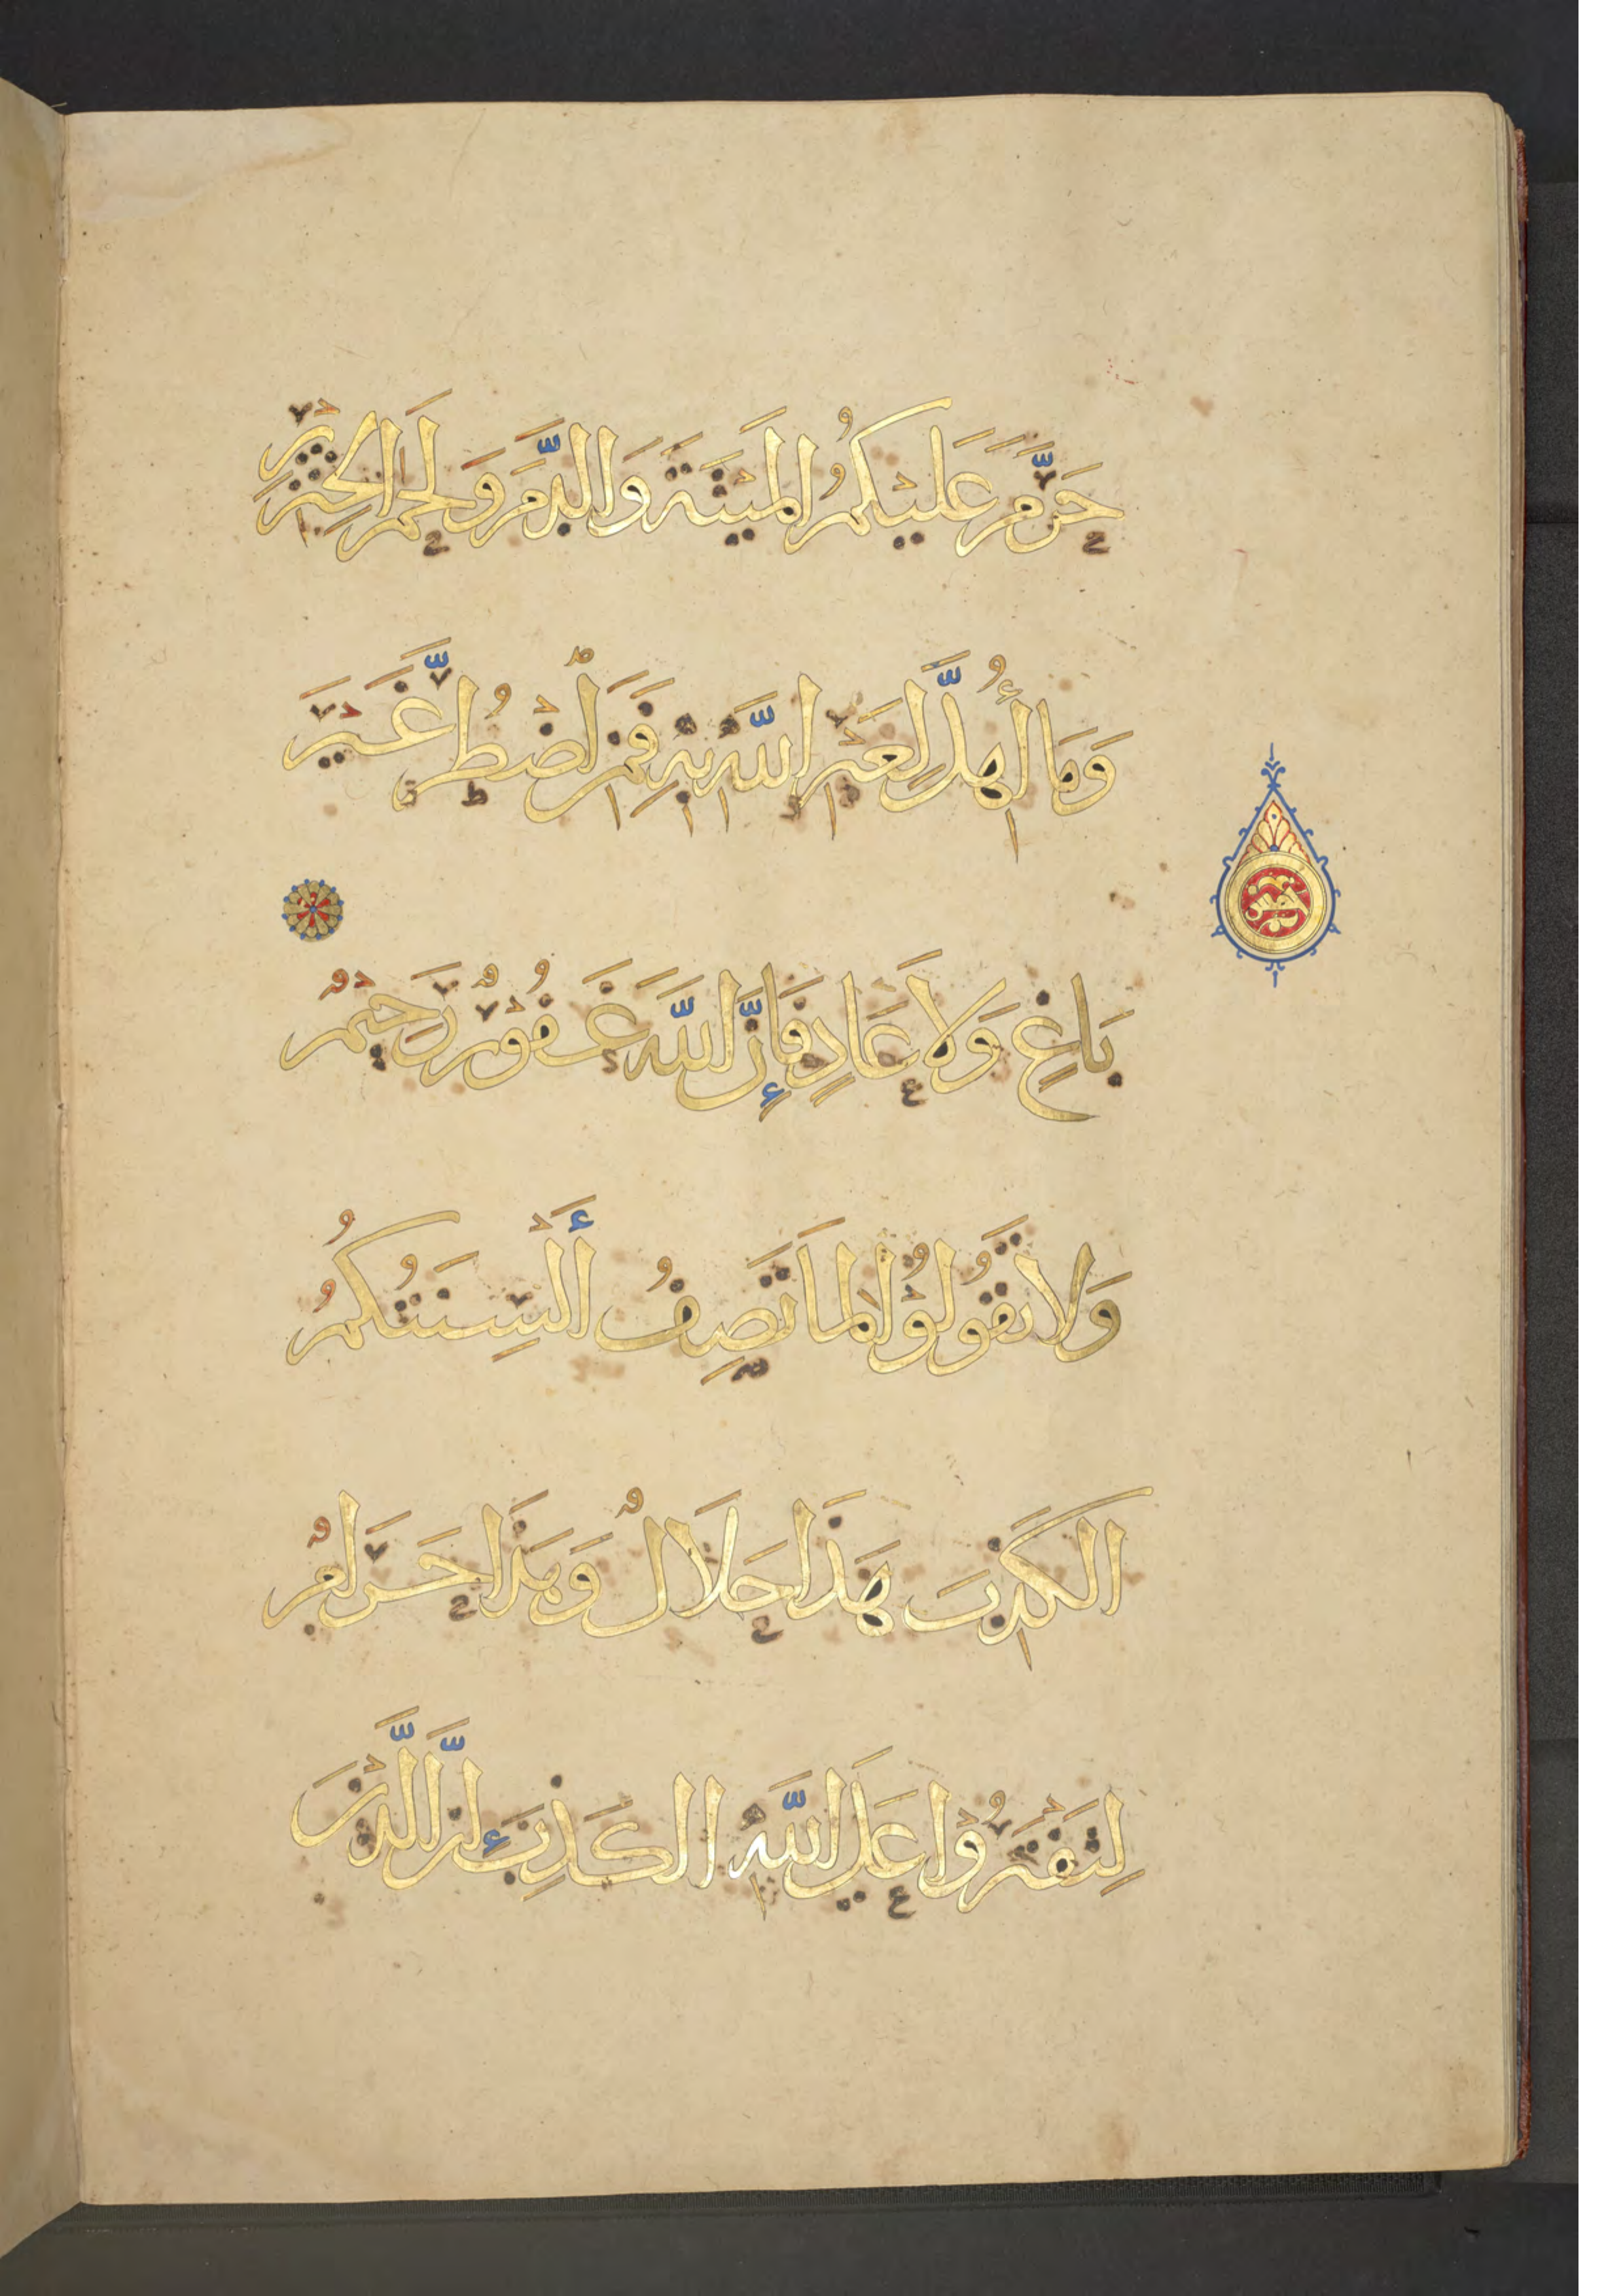 حَرَّمَ عَلَيْكُمُ الْمَيْتَةَ وَالدَّمَ وَلَحْمَ الْخِنْزِيرِ
وَمَا أُهِلَّ لِغَيْرِ اللَّهِ بِهِ فَمَنِ اضْطُرَّ غَيْرَ
بَاغٍ وَلَا عَادٍ فَإِنَّ اللَّهَ غَفُورٌ رَحِيمٌ
وَلَا تَقُولُوا لِمَا تَصِفُ أَلْسِنَتُكُمُ
الْكَذِبَ هَذَا حَلَالٌ وَهَذَا حَرَامٌ
لِتَفْتَرُوا عَلَى اللَّهِ الْكَذِبَ إِنَّ الَّذِينَ